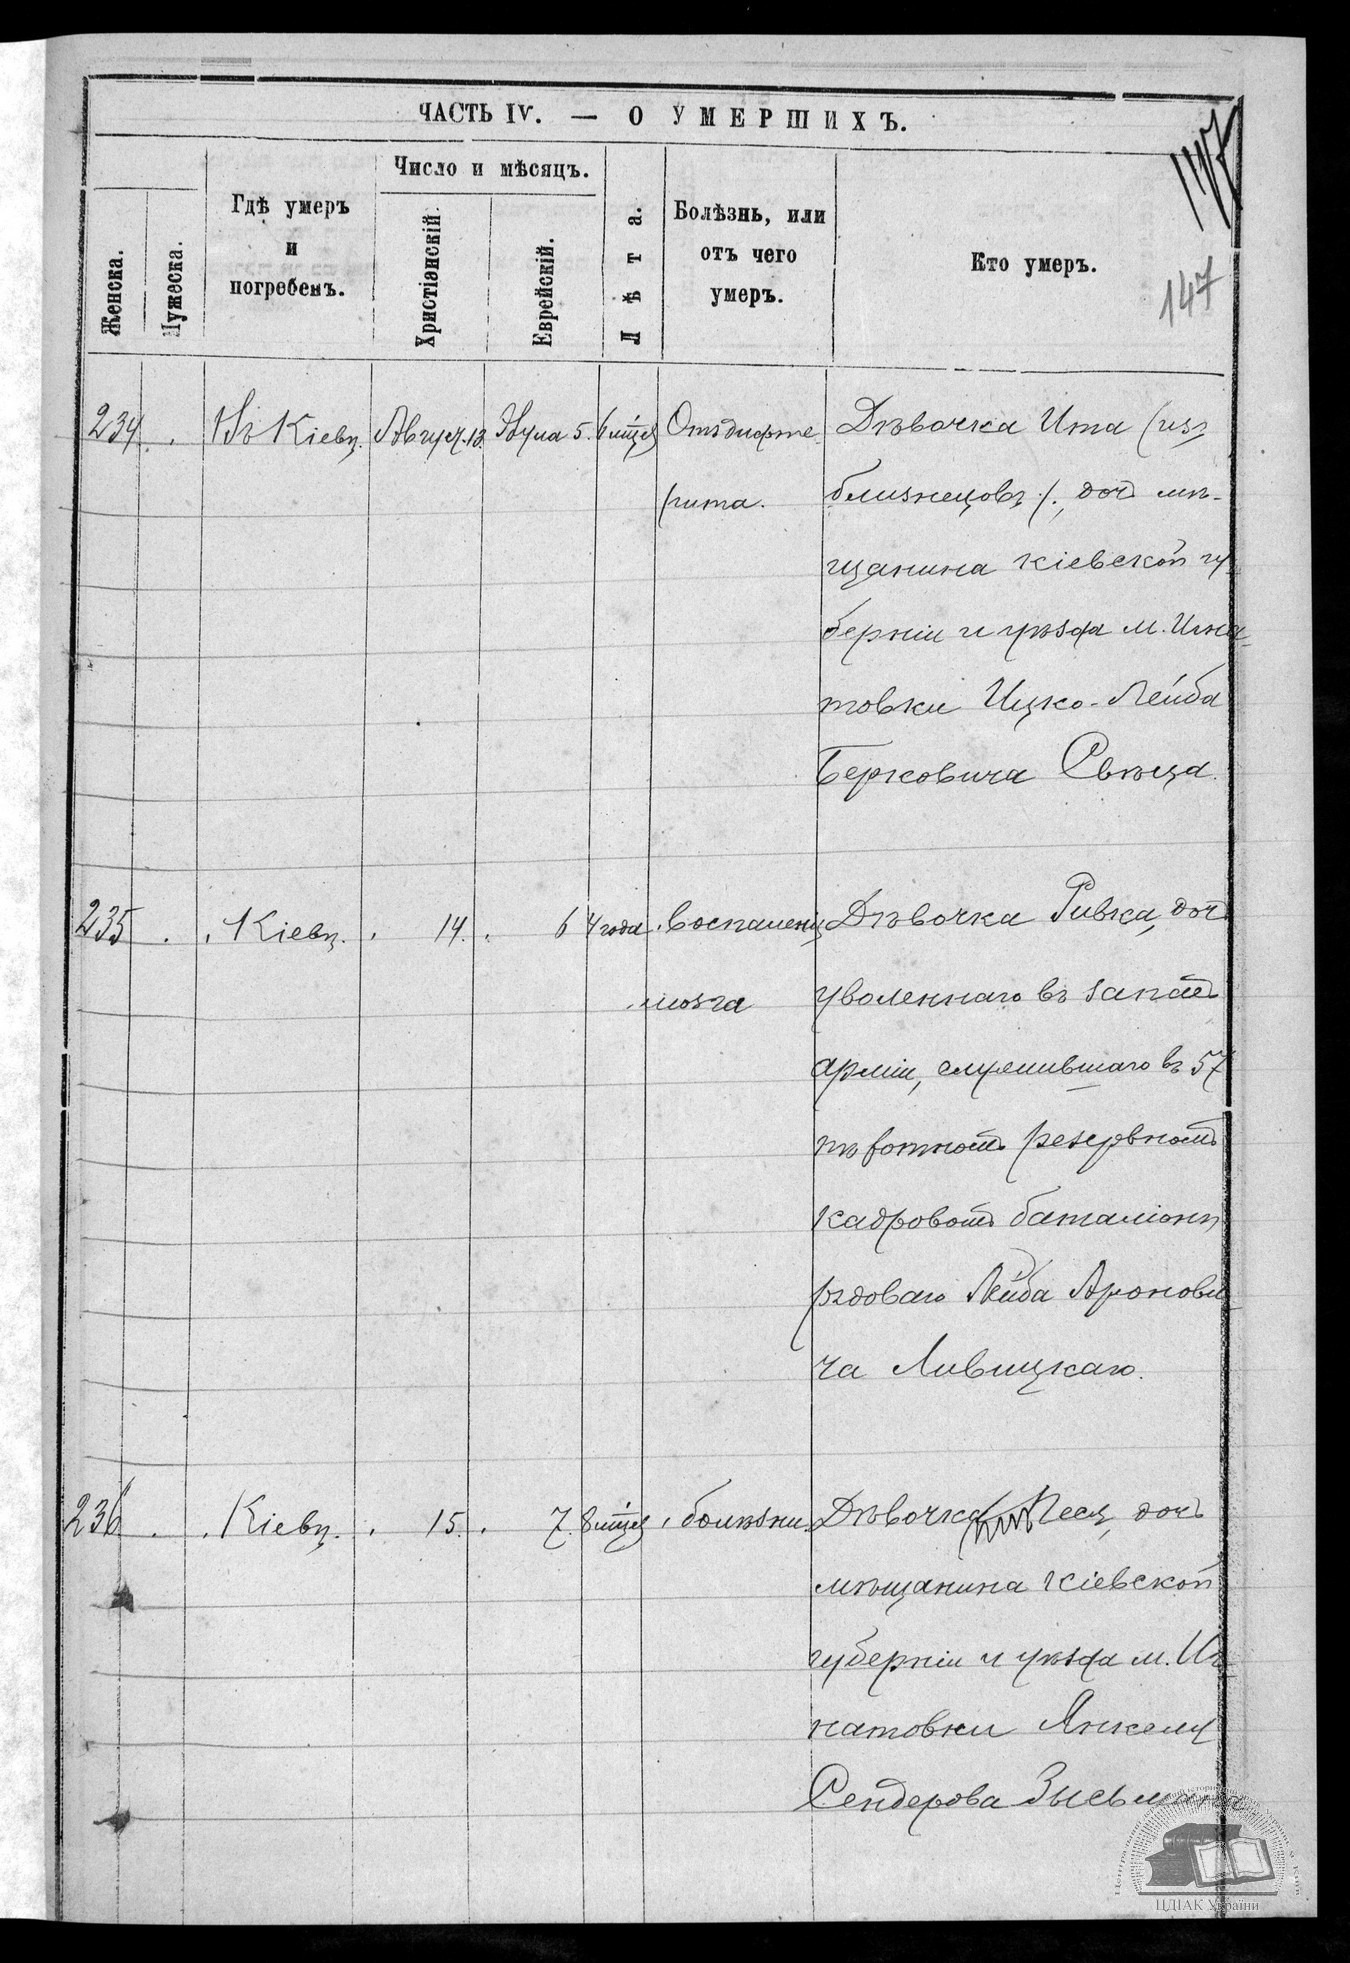 ЧАСТЬ IV. — О УМЕРШИХЪ.
147
Женска.
Мужеска.
Гдѣ умеръ
и
погребенъ.
Число и мѣсяцъ.
Христіанскій.
Еврейскій.
Лѣта.
Болѣзнь, или
отъ чего
умеръ.
Кто умеръ.
234. Въ Кіевѣ. Август. 13. 5. Отъ дифте Дѣвочка Ита (изъ
рита. близнецовъ), доч мѣ-
щанина Кіевской гу
берніи и уѣзда м. Игна
товки Ицко-Лейба
Берковича Свѣца.
235 Кіевѣ. 14. 6 4 года Воспаленія Дѣвочка Ривка, доч
мозга уволеннаго въ запасъ
арміи, служившаго въ 57
пѣхотномъ резервномъ
кадровомъ баталіонѣ
рядоваго Лейба Аронови
ча Ливицкаго.
236 Кіевѣ. 15. 7. болѣзни Дѣвочка Песя, дочь
мѣщанина Кіевской
губерніи и уѣзда м. Иг
натовки Янкеля
Сендерова Зысьмана
ЦДІАК України